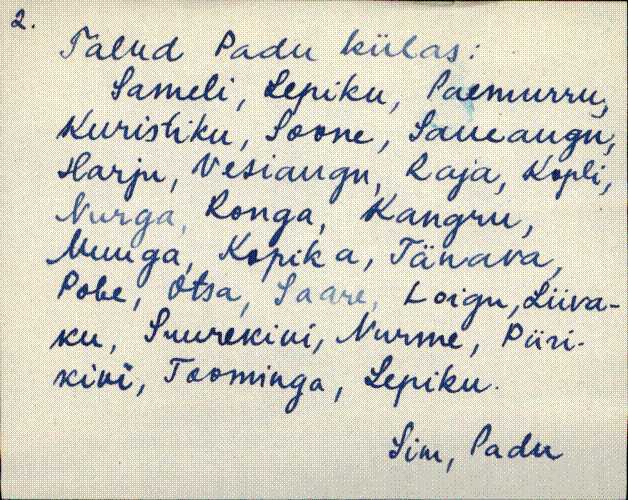 2.
Talud Padu külas:
Sameli, Lepiku, Paemurru,
Kuristiku, Soone, Saueaugu,
Harju, Vesiaugu, Raja, Kopli,
Nurga, Ronga, Kangru,
Muuga, Kopika, Tänava,
Pobe, Otsa, Saare, Loigu, Liiva-
ku, Suurekivi, Nurme, Piiri-
kivi, Toominga, Lepiku.
Sim, Padu